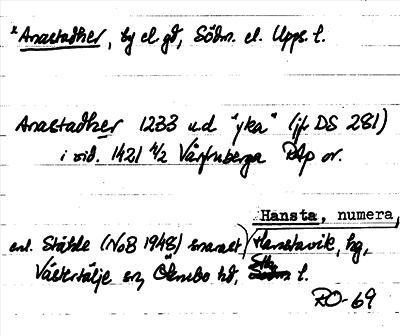 *Anastadher, by el gd, Södm. el. Upps. l.
Anastadher 1233 u.d "yka" (jfr DS 281)
i vid. 1421 4/2 Vårfruberga RAp or.
Hansta, numera,
enl. Ståhle (NoB 1948) snarast) Hanstavik, hg,
Västertälje sn, Öknebo hd, Sthlm l.
RO-69